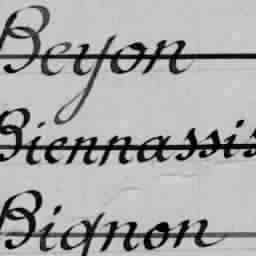 Beyon
Biennassis
Bignon